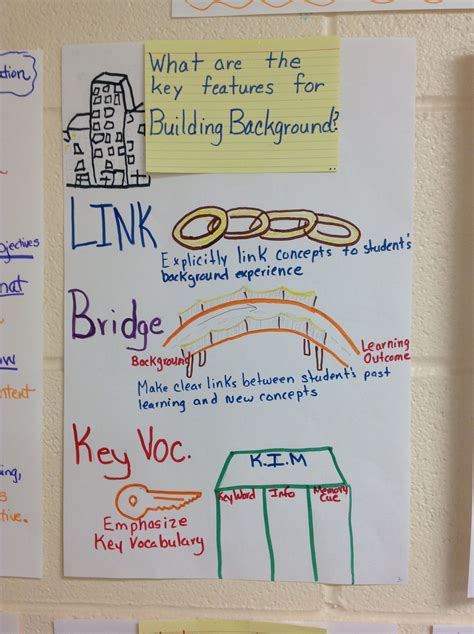 What are the
key features for
Building Background?
LINK
Explicitly link concepts to student's
background experience
Bridge
Background
Learning
Outcome
Make clear links between student's past
learning and new concepts
Key Voc.
Emphasize
Key Vocabulary
K.I.M
Key Word
Info
Memory
Cue
ation
ojectives
nat
ow
ntent
ing,
s
tive.